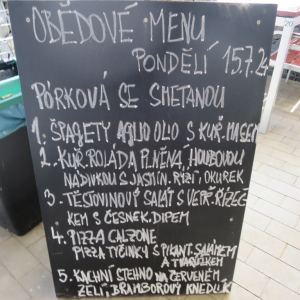 OBĚDOVÉ MENU
PONDĚLÍ 15.7.24
PÓRKOVÁ SE SMETANOU
1. ŠPAGETY AGLIO OLIO S KUŘ. MASEM
2. KUŘ. ROLÁDA PLNĚNÁ HOUBOVOU
NÁDIVKOU S JASMÍN. RÝŽÍ, OKUREK
3. TĚSTOVINOVÝ SALÁT S VEPŘ. ŘÍZEČ-
KEM S ČESNEK. DIPEM
4. PIZZA CALZONE
PIZZA TYČINKY S PIKANT. SALÁMEM
A TVARŮŽKEM
5. KACHNÍ STEHNO NA ČERVENÉM
ZELÍ, BRAMBOROVÝ KNEDLÍK